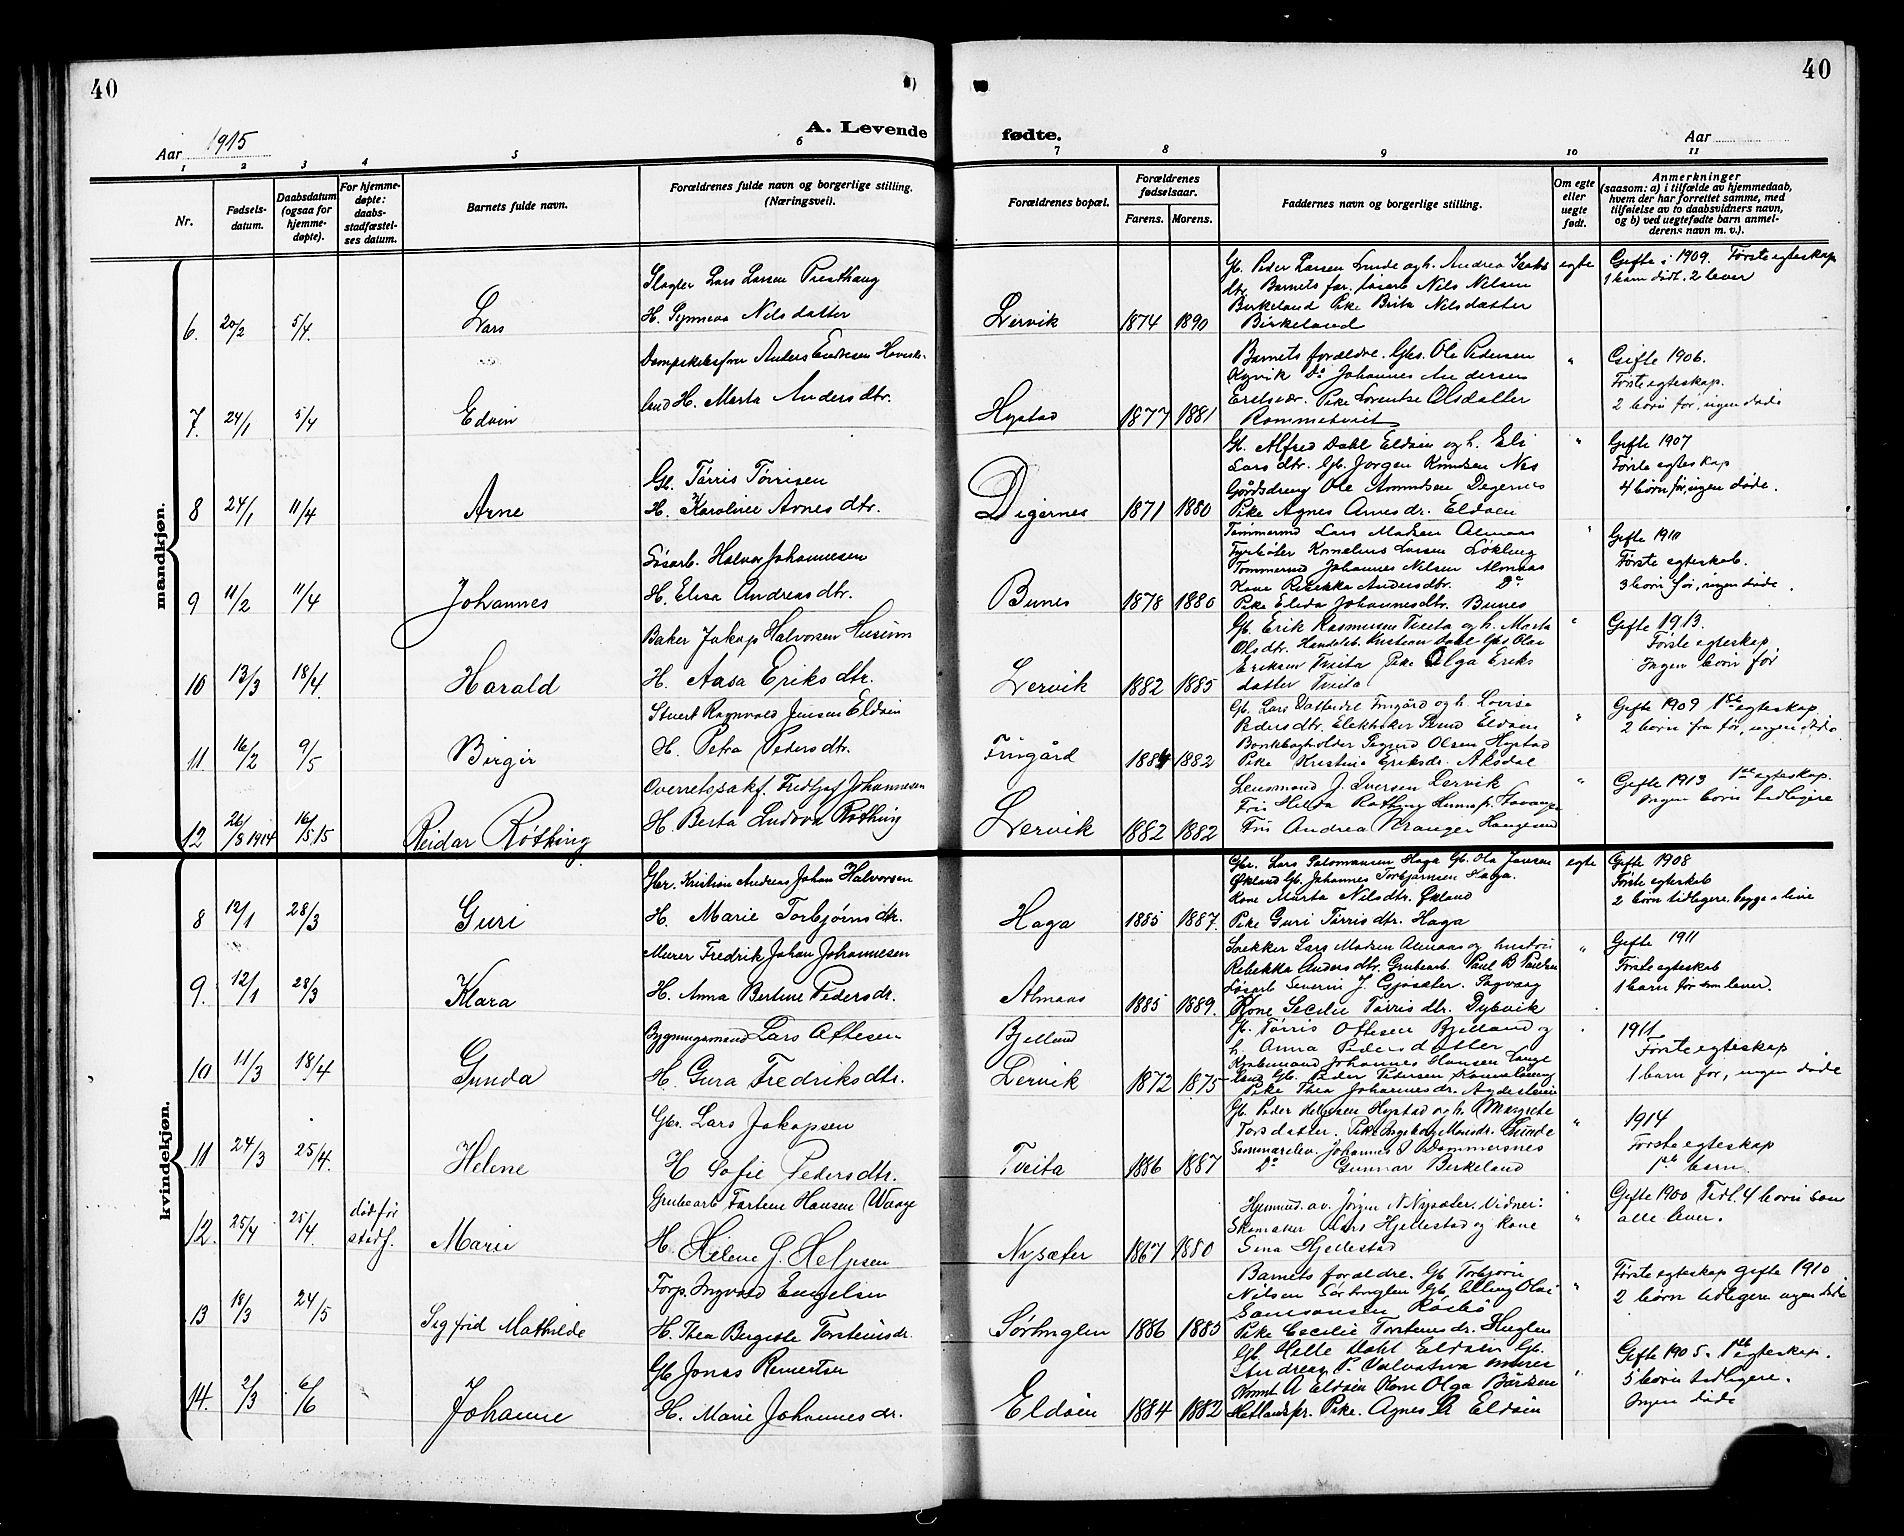 40
40
A. Levende fødte.
Aar 1915
Aar
1 2 3 4 5 6 7 8 9 10 11
Nr.
Fødsels-
datum.
Daabsdatum
(ogsaa for
hjemme-
døpte).
For hjemme-
døpte:
daabs-
stadfæstel-
ses datum.
Barnets fulde navn.
Forældrenes fulde navn og borgerlige stilling.
(Næringsvei).
Forældrenes bopæl.
Forældrenes
fødselsaar.
Farens. Morens.
Faddernes navn og borgerlige stilling.
Om egte
eller
uegte
født.
Anmerkninger
(saasom: a) i tilfælde av hjemmedaab,
hvem der har forrettet samme, med
tilføielse av to daabsvidners navn,
og b) ved uegtefødte barn anmel-
derens navn m. v.).
mandkjøn.
6. 20/2 5/4. Lars
Slagter Lars Larsen
H. Synneva Nilsdatter
Lervik 1874 1890
Gb. Peder Larsen Lunde og h. Andrea
dtr. Barnets far. Nils Nilsen
Birkeland Pike Brita Nilsdatter
Birkeland
egte
Gifte i 1909. Første egteskap
1 barn dødt. 2 lever
7. 24/1 5/4 Edvin
Anders Endresen
land H. Marta Andersdtr.
Hystad 1877 1881
Barnets forældre. Gbs. Ole Pedersen
Kyvik Do Johannes Andersen
Pike Lorentse Olsdatter
Rommetveit
"
Gifte 1906.
Første egteskap.
2 børn før, ingen døde
8 24/1 11/4 Arne
Gb. Tørris Tørrisen
H. Karoline Arnesdtr.
Digernes 1871 1880
Gb. Alfred Dahl Eldøen og h. Eli
Larsdtr. Gb. Jørgen Knudsen Nes
Gårdsdreng Ole Amundsen Degernes
Pike Agnes Arnesdr. Eldøen
"
Gifte 1907
Første egteskap
4 børn før, ingen døde.
9 11/2 11/4 Johannes
Løsarb. Halvor Johannesen
H. Elisa Andreasdtr.
Bunes 1878 1880
Tømmermd Lars Madsen Almaas
Fyrbøter Kornelius Larsen Løkling
Tømmermd Johannes Nilsen Almaas
Kone Rebekka Andersdtr. Do
Pike Elida Johannesdtr. Bunes
"
Gifte 1910
Første egteskab.
3 børn før, ingen døde.
10 13/3 18/4. Harald
Baker Jakop Halvorsen Husum
H. Aasa Eriksdtr.
Lervik 1882 1885
Gb. Erik Rasmussen Tveita og h. Marta
Olsdtr. Handelsb. Kristian Dahl Gbs Olai
Eriksen Tveita Pike Olga Eriks
datter Tveita
"
Gifte 1913.
Første egteskap,
Ingen børn før
11. 16/2 9/5 Birger
Stuert Ragnvald Jensen Eldøen
H. Petra Pedersdtr.
1884 1882
Gb. Lars og h. Lovise
Pedersdtr. Elektriker Eldøen
Bankbogholder Sigurd Olsen Hystad
Pike Kristina Eriksdr. Aksdal
"
Gifte 1909 1ste egteskap
2 børn fra før, ingen døde
12 26/8 1914 16/5 15 Reidar Røthing
Overretssakf. Fridtjof Johannesen
H. Berta Ludova Røthing
Lervik 1882 1882
Lensmand J. Iversen Lervik
Frk Hilda Røthing
Frk Andrea Haugesund
"
Gifte 1913 1ste egteskap.
Ingen børn tidligere
kvindekjøn.
8 12/1 28/3 Guri
Gbr. Kristian Andreas Johan Halvorsen
H. Marie Torbjørnsdtr.
Haga 1885 1887.
Gbr. Lars Salomonsen Haga Gb. Ola Jansen
Økland Gb. Johannes Torbjørnsen Haga.
Kone Marta Nilsdtr. Økland
Pike Guri Tørrisdtr. Haga
egte
Gifte 1908
Første egteskab
2 børn tidligere, begge i live
9. 12/1 28/3 Klara
Murer Fredrik Johan Johannesen
H. Anna Bertine Pedersdr.
Almaas 1885 1889.
Snekker Lars Madsen Almaas og hustru
Rebekka Andersdtr. Grubearb. Paul B Paulsen
Løsarb Severin J. Gjøsæter. Sagvaag
Kone Secilie Tørrisdtr. Dybvik
"
Gifte 1911
Første egteskab
1 barn før som lever.
10 11/3 18/4 Gunda
Bygningsmand Lars Oftesen
H. Gura Fredriksdtr.
Bjelland
Lervik 1872 1875
Gb. Tørris Oftesen Bjelland og
h. Anna Pedersdatter
Johannes Hansen Lange
land Gb. Peder Pedersen
Pike Thea Johannesdr.
1911
Første egteskap
1 barn før, ingen døde
11 24/3 25/4. Helene
Gbr. Lars Jakopsen
H Sofie Pedersdtr.
Tveita 1886 1887
Gb. Peder Helgesen Hystad og h. Margrete
Torsdatter. Pike Ingeborg Monsdr. Lunde
Seminarelev. Johannes P Dommersnes
Do Gunnar Birkeland
"
1914
Første egteskap
1ste barn
12. 25/4 25/4. død før
stadf. Marie
Grubearb Torten Hansen Waage
H. Helene G. Helgesen
Nysæter 1867 1880
Hjemmd. av Jørgen N Nysæter. Vidner:
Skomaker Lars Hjellestad og kone
Sina Hjellestad
"
Gifte 1900 Tidl. 4 børn som
alle lever.
13 18/3 24/5 Sigfrid Mathilde
Forp. Ingvald Engelsen
H. Thea Bergitte Torstensdr.
Sørhuglen 1886 1885
Barnets forældre. Gb Torbjørn
Nilsen Sørhuglen Gb. Elling Olai
Samsonsen Røsbø
Pike Cecilie Torstensdr. Huglen
"
Første egteskap gifte 1910
2 børn tidligere ingen døde
14. 2/3 6/6 Johanne
Gb Jonas Remertsen
H. Marie Johannesdr.
Eldøen 1884 1882
Gb. Helle Dahl Eldøen Gb.
Andreas P. murer
A Eldøen Kone Olga Bårdsen
Pike. Agnes A Eldøen
"
Gifte 1905. 1ste egteskap.
5 børn tidligere.
Ingen døde